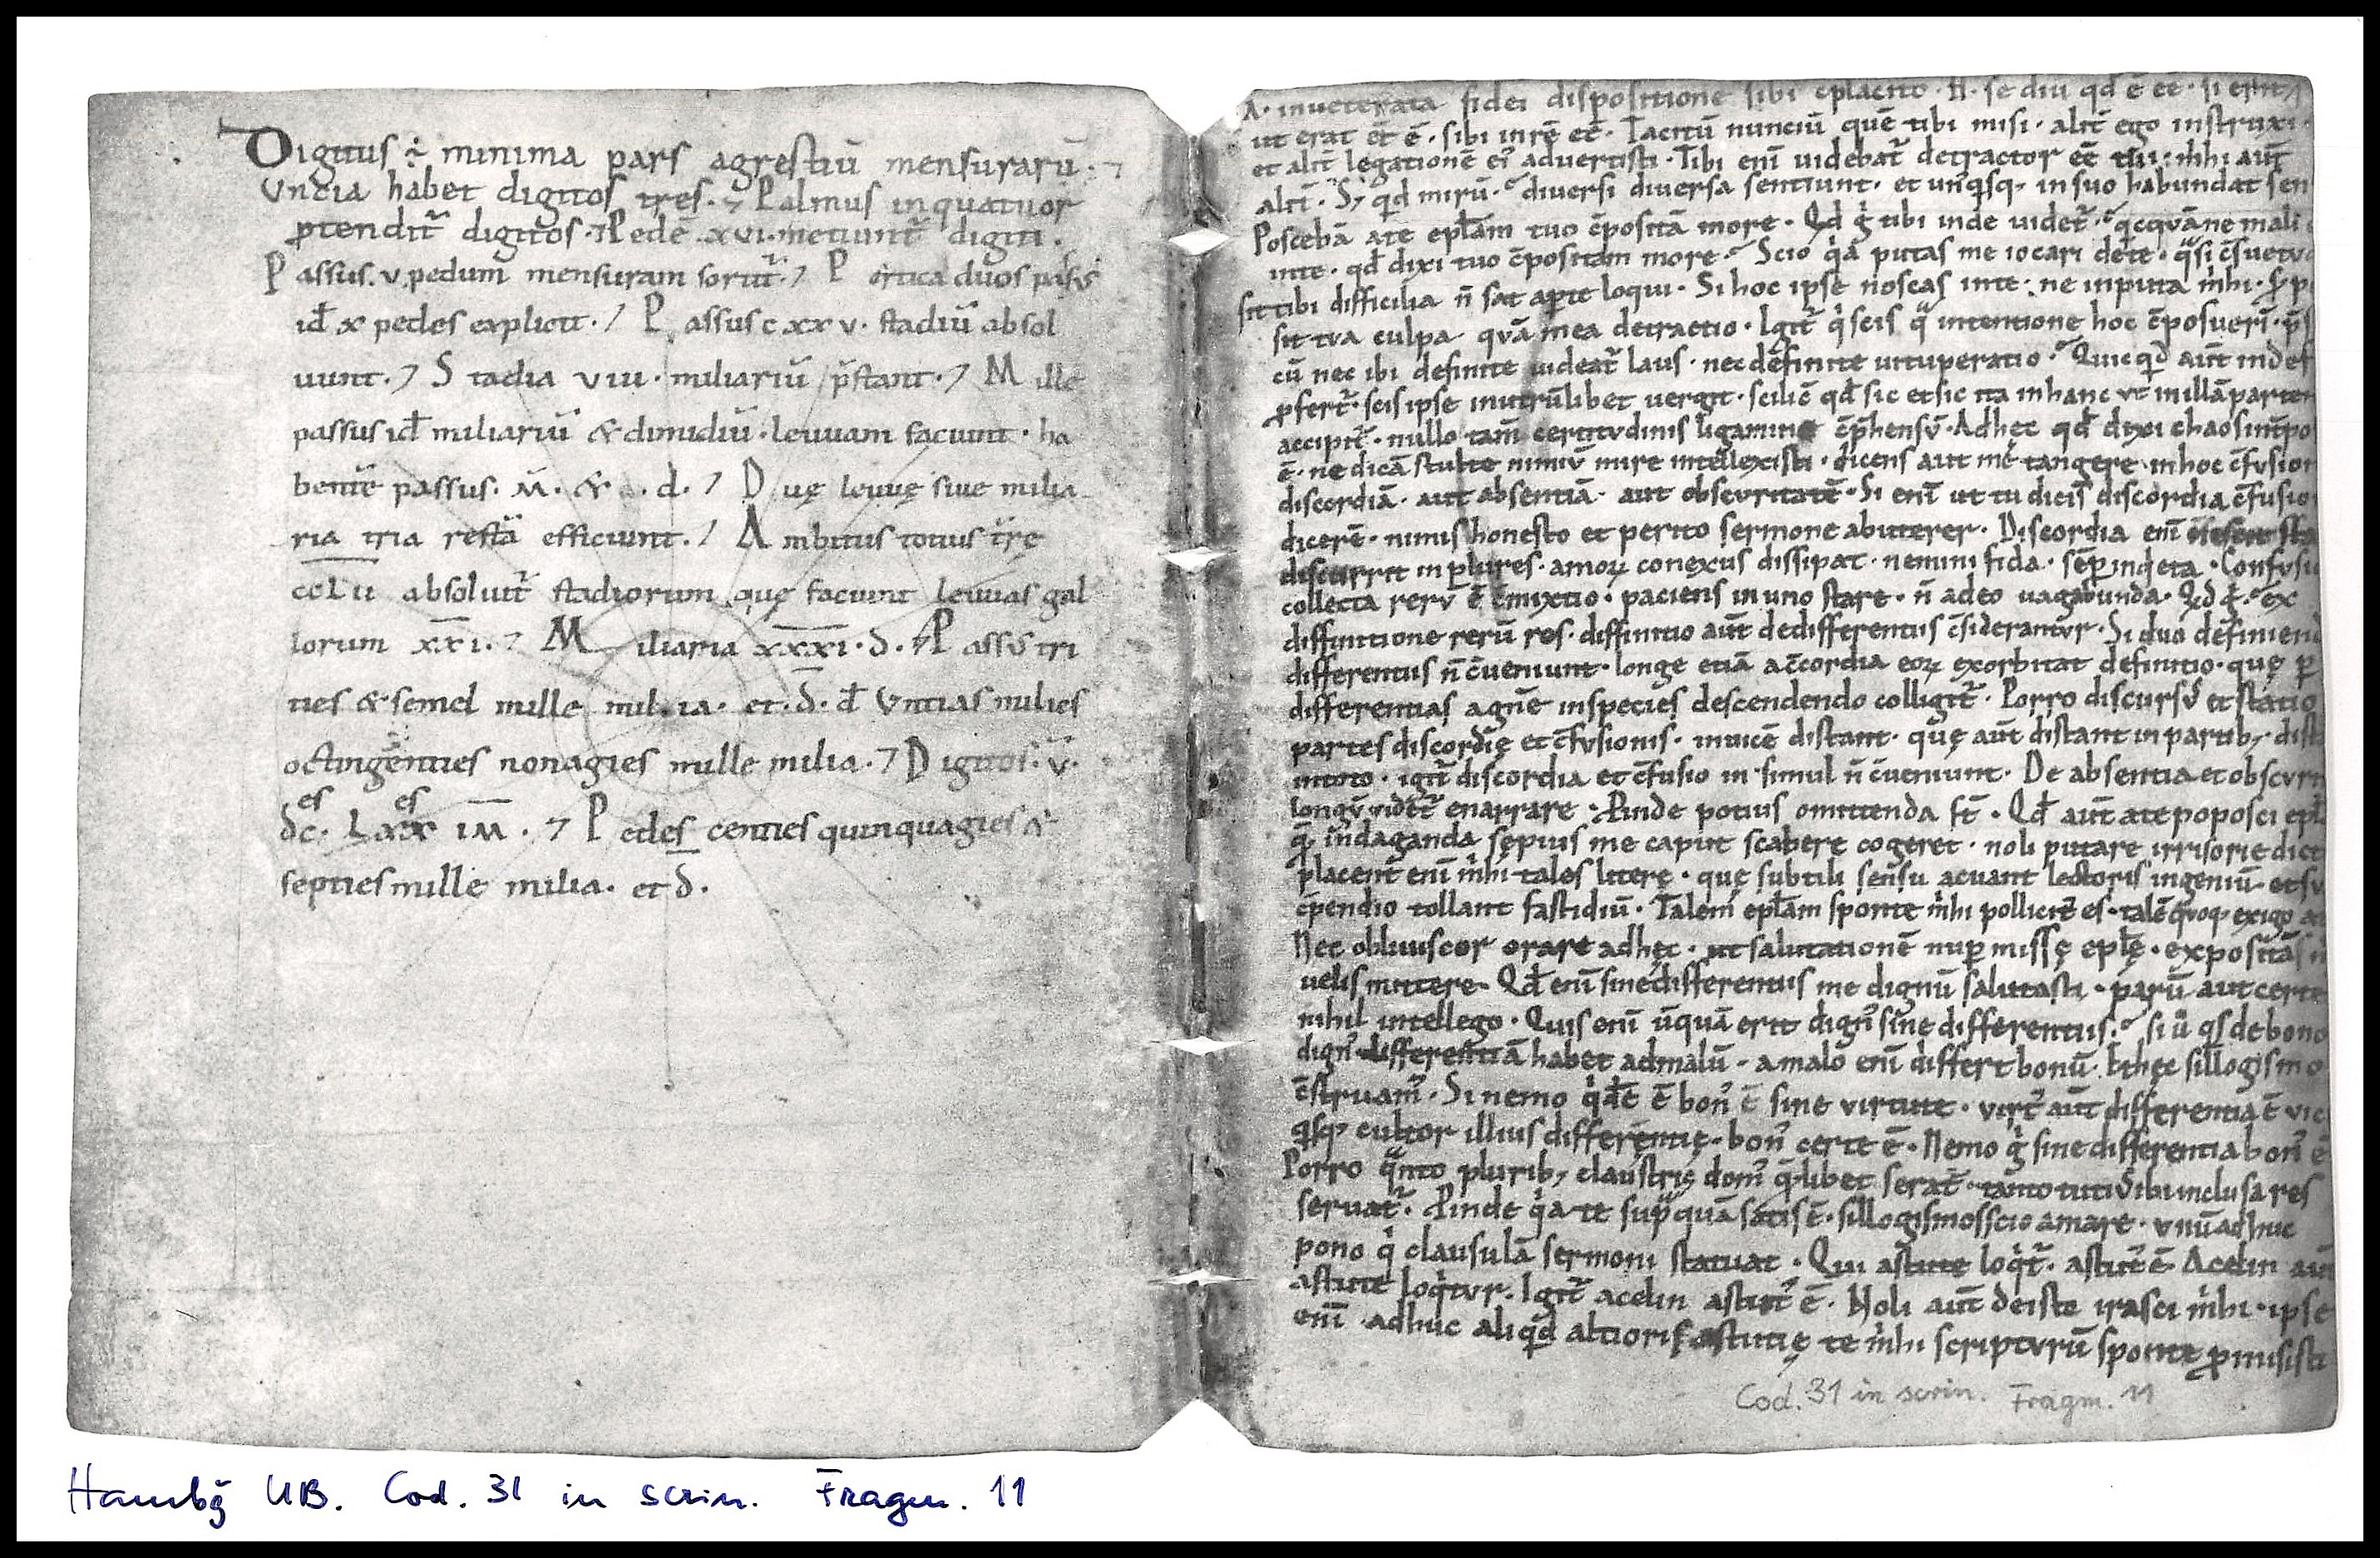 Digitus ÷ minima pars agrestiū mensurarū.
Vncia habet digitos tres. Palmus in quatuor
ꝑtendit̄ digitos. Pedē xvi. metiunt̄ digiti.
Passus. v. pedum mensuram sortit̄. Pertica duos passus
id̄ x pedes explicit. Passus c xx v. stadiū absol
uunt. Stadia viii. miliariū p̄stant. Mille
passus id̄ miliariū & dimidiū. leuuam faciunt. ha
bentē passus. M̄. & . d. Duę leuuę siue milia
ria tria restā efficiunt. Ambitus totius trę
cclii absoluit̄ stadiorum quę faciunt leuuas gal
lorum x̄x̄i. Miliaria x̄x̄x̄i. d. Passū tri
cies & semel mille milia. et. d̄. d̄ Vntias milies
octingenties nonagies mille milia. Digitos. v̄.
es es
dc. Lxxx im̄. Pedes centies quinquagies &
septies mille milia. et d̄.
A. inueterata fidei dispositione sibi c̄placito. se diu qd̄ ē eē. si
ut erat et ē. sibi in rē eē. Tacitū nunciū quē tibi misi. alit̄ ego instruxi.
et alit̄ legationē ei᾽ aduertisti. Tibi enī uidebat̄ detractor eē tui: m̄hi aūt
alit̄. S; qid mirū. diuersi diuersa sentiunt. et un᾽qisq; in suo habundat sen
Poscebā a te epl̄am tuo c̄positā more. Qd̄ g̊ tibi inde uidet̄.
inte. qd̄ dixi tuo c̄positam more. Scio qa putas me iocari de te. qsi c̄suetu
sit tibi difficilia n̄ sat aꝑte loqui. Si hoc ipse noscas in te: ne inputa m̄hi.
sit tua culpa quā mea detractio. Igit̄ qi scis qa intentione hoc c̄posuerī.
cū nec ibi definite uideat̄ laus. nec definite uituperatio. Quicqd aūt indef
ꝓfert̄. scis ipse in utrūlibet uergit. scilic̄ qd̄ sic et sic ita in hanc ut̄ in illā parte
accipit̄. nullo tam̄ certitudinis ligamine c̄p̄hensū. Ad hec qd̄ dixi chaos
ē. ne dicā stulte nimiū mire intellexisti. dicens aut mē tangere in hoc c̄fusion
discordiā. aut absentiā. aut obscuritatē. Si enī ut tu dicis discordia c̄fusio
dicerē. nimis honesto et perito sermone abuterer. Discordia enī
discurrit in plures. amoꝝ conexus dissipat. nemini fida. semꝑ inqieta. Confusi
collecta rerū ē c̄mixtio. paciens in uno stare. n̄ adeo uagabunda. ex
diffinitione rerū res. diffinitio aūt de differentiis c̄siderantur. Si duo definiend
differentiis n̄ c̄ueniunt. longe etiā a c̄cordia eoꝝ exorbitat definitio. quę ꝑ
differentias a gn̄e in species descendendo colligit̄. Porro discursus et statio
partes discordię et c̄fusionis. inuicē distant. quę aūt distant in partib; dist
in toto. igit̄ discordia et c̄fusio in simul n̄ c̄ueniunt. De absentia et obscuri
longū uidet̄ enarrare. Ꝓinde potius omittenda st̄. Qd̄ aūt a te poposci epl̄
q̄ indaganda sepius me caput scabere cogeret. noli putare irrisorie dict
placent̄ enī m̄hi tales litterę. quę subtili sensu acuant lectoris ingeniū et su
c̄pendio tollant fastidiū. Talem epl̄am sponte m̄hi pollicit᾽ es. talē quoq; exigo
Nec obliuiscor orare adhęc. ut salutationē nuꝑ missę epl̄ę. expositā
uelis mittere. Qd̄ enī sine differentiis me dignū salutasti. parū aut certe
nihil intellego. Quis enī ūquā erit dign᾽ sine differentiis. si ů qis de bono
dign᾽ differentiā habet ad malū. a malo enī differt bonū. hęc sillogismo
c̄struam᾽. Si nemo qidē ē bon᾽ ē sine uirtute. uirt᾽ aūt differentia ē uic
qisq; cultor illius differentię. bon᾽ certe ē. Nemo g̊ sine differentia bon᾽ ē
Porro qanto plurib; claustris dom᾽ q̄libet serat̄. tanto tuti᾽ ibi inclusa res
seruat̄. Ꝓinde qa te supra quā satis ē. sillogismos scio amare. unū adhuc
pono qi clausulā sermoni statuat. Qui astute loqit̄. astut᾽ ē. Acelin aūt
astute loqitur. Igit̄ acelin astut᾽ ē. Noli aūt de iste irasci m̄hi. ipse
enī adhuc aliqid altioris astutię te m̄hi scripturū sponte ꝓmisisti
Cod. 31 in scrin. Fragm. 11
Hambg UB. Cod. 31 in scrin. Fragm. 11